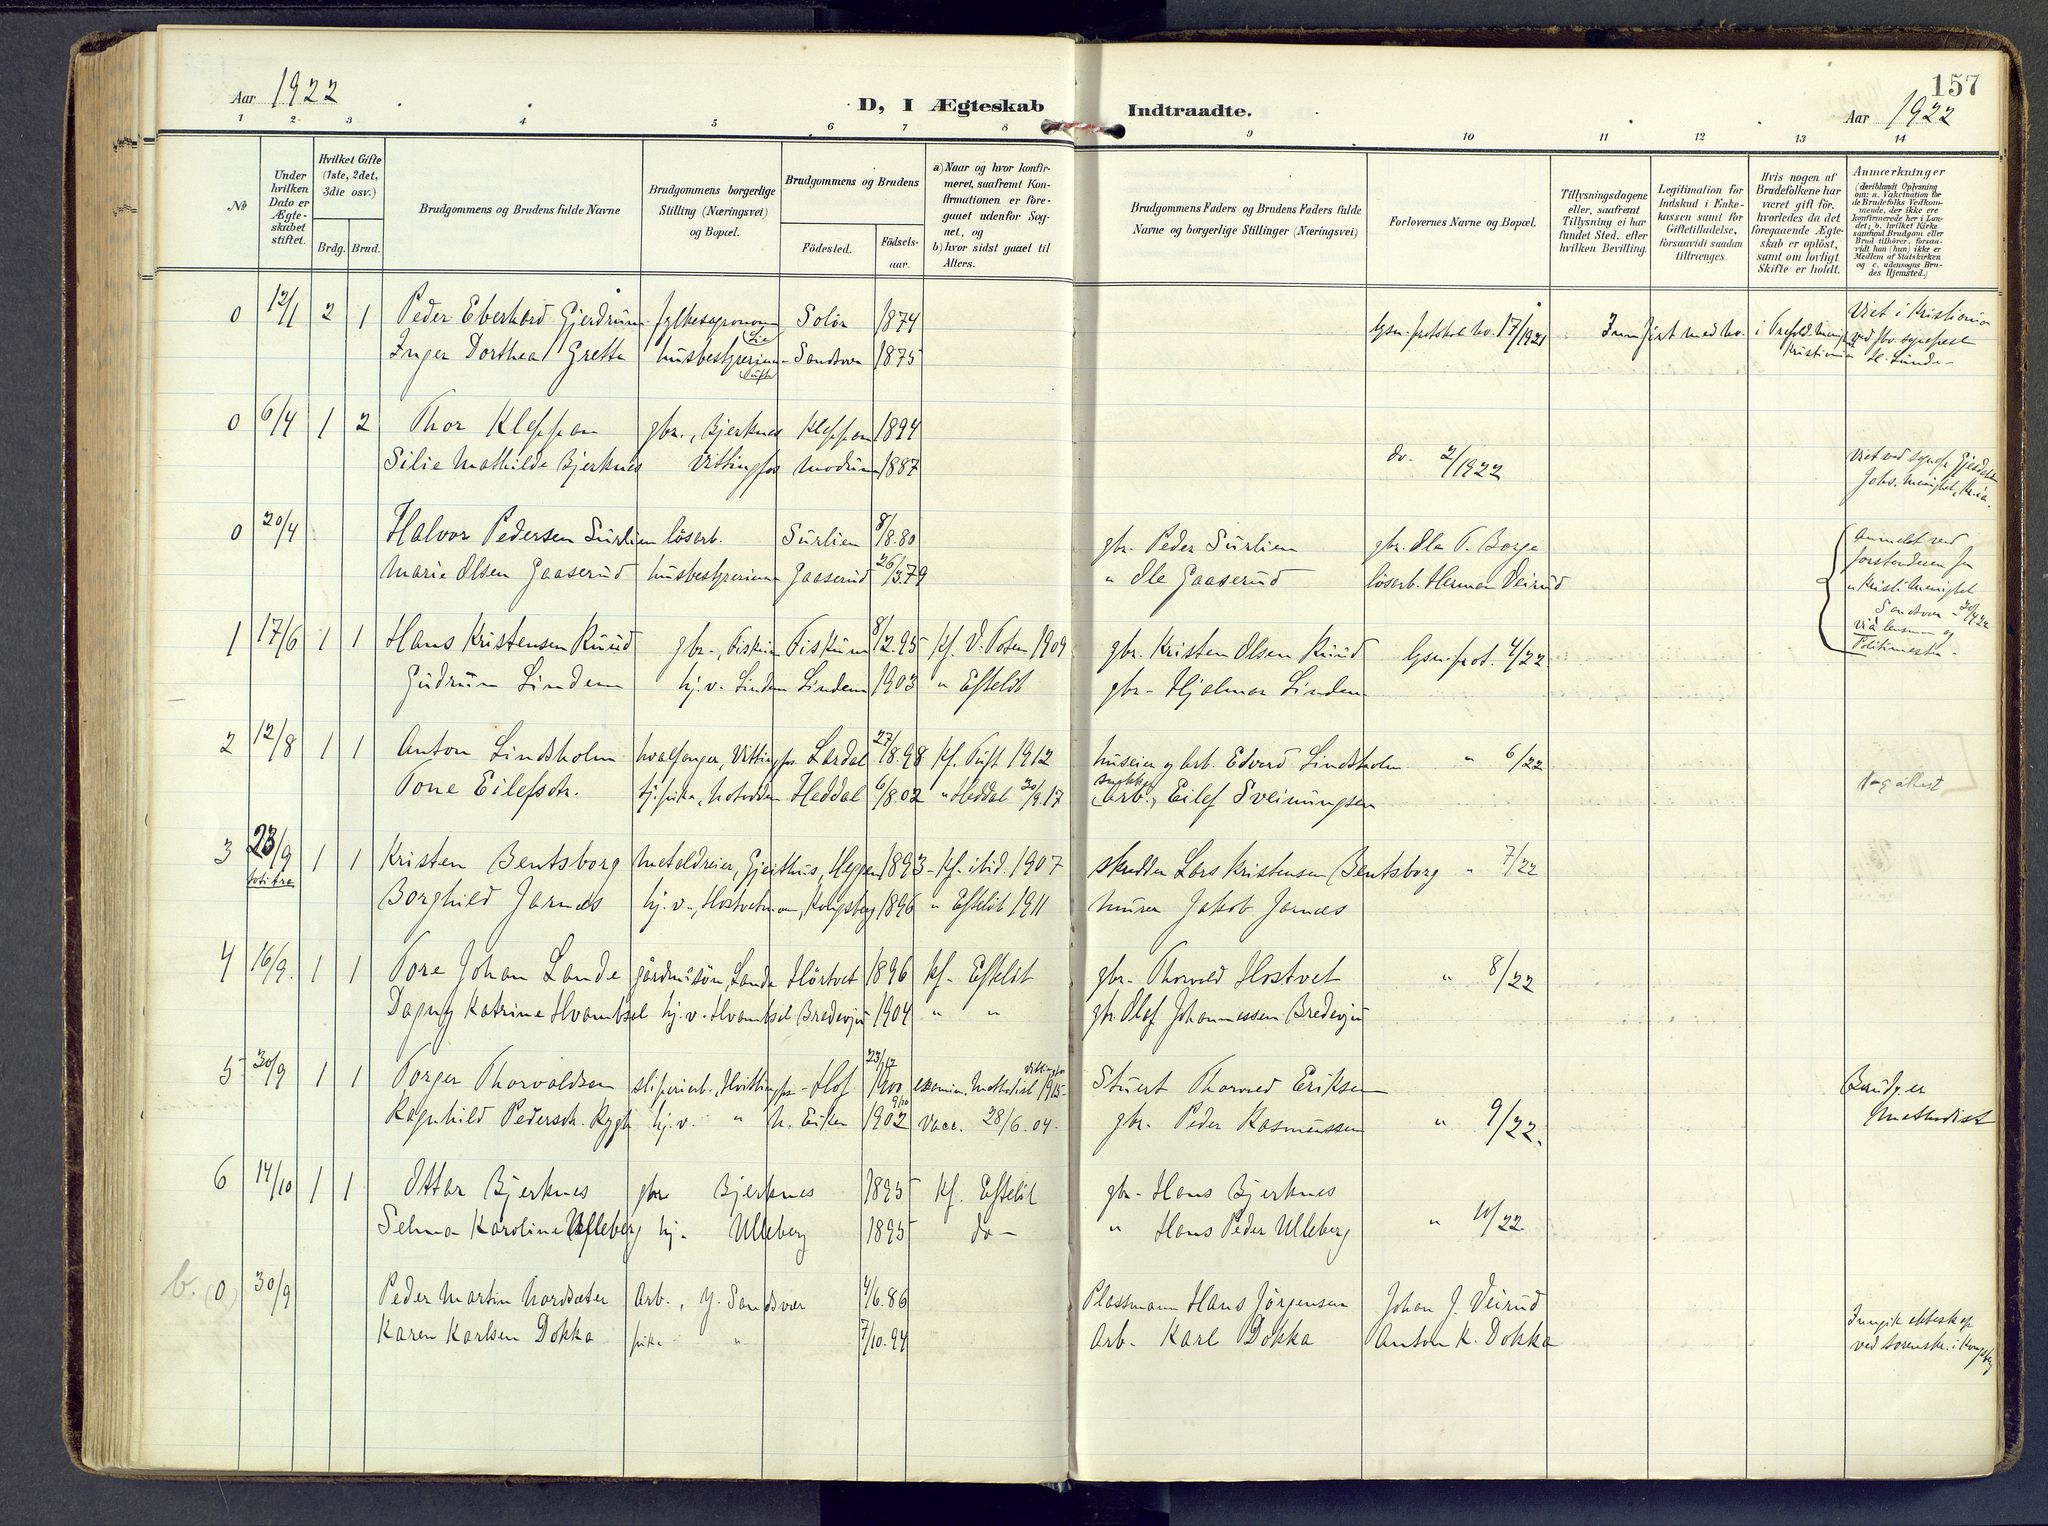 Aar 1922
D, I Ægteskab Indtraadte.
157
Aar 1922
1 2 3 4 5 6 7 8 9 10 11 12 13 14
No
Under hvilken Dato er Ægteskabet stiftet.
Hvilket Gifte (1ste, 2det, 3die osv.)
Brdg. Brud.
Brudgommens og Brudens fulde Navne
Brudgommens borgerlige Stilling (Næringsvei) og Bopæl.
Brudgommens og Brudens
Födested.
Födselsaar.
a) Naar og hvor konfirmeret, saafremt Konfirmationen er foregaaet udenfor Sognet, og
b) hvor sidst gaaet til Alters.
Brudgommens Faders og Brudens Faders fulde Navne og borgerlige Stillinger (Næringsvei)
Forlovernes Navne og Bopæl.
Tillysningsdagene eller, saafremt Tillysning ei har fundet Sted, efter hvilken Bevilling.
Legitimation for Indskud i Enkekassen samt for Giftetilladelse, forsaavidt saadan tiltrænges.
Hvis nogen af Brudefolkene har været gift för, hvorledes da det foregaaende Ægteskab er oplöst, samt om lovligt Skifte er holdt.
Anmærkninger
(deriblandt Oplysning om: a. Vakcination for de Brudefolks Vedkommende, der ikke ere konfirmerede her i Landet; b. hvilket Kirkesamfund Brudgom eller Brud tilhörer, forsaavidt han (hun) ikke er Medlem af Statskirken og c. udensogns Brudes Hjemsted.)
0 12/1 2 1 Peder Eberhard Gjerdrum fylkesagronom Solör 1874 lysn.protokol no. 17/1921 Viet i Kristiania
Inger Dorthea Grette husbestyrerinne Sandsvær 1875 Kristiania
0 6/4 1 2 Thor Kleppan gbr., Bjerknes Kleppan 1894
Silie Mathilde Bjerknes Vittingfos Modum 1887 do. 2/1922
0 20/4 Halvor Pedersen Surlien löserb. Surlien 8/8.80 gbr. Peder Surlien gbr. Ole T. Borge Anmeldt ved
Marie Olsen Gaaserud husbestyrerinne Gaaserud 26/3.79 " Ole Gaaserud löserb. Herman Veirud
1 17/6 1 1 Hans Kristensen Ruud gbr., Fiskum Fiskum 8/2.95 kf. V. Foten 1909 gbr. Kristen Olsen Ruud lysn.prot. 4/22
Gudrun Linden hj.v. Linden Linden 1903 " Efteløt gbr. Hjalmar Linden
2 12/8 1 1 Anton Lindsholm hvalfanger, Vittingfos Lardal 27/8.98 kf. Tuft 1912 huseier og arb. Edvard Lindsholm " 6/22
Tone Eilefsdtr. tj.pike, Notodden Heddal 6/8.02 " Heddal 30/9.17 Arb., Eilef Sveinungsen
3 23/9 1 1 Kristen Bentsborg metaldreier, Gjeithus, Heggen 1893 kf. i tid. 1907 skredder Lars Kristensen Bentsborg " 7/22
Borghild Jarnæs hj.v., Hostvetmoen, Kongsberg 1896 " Efteløt 1911 murer Jakob Jarnæs
4 16/9. 1 1 Tore Johan Lande gårdmisön, Lande Hörtvet 1896 kf. Efteløt gbr. Thorvald Hostvet " 8/22
Dagny Katrine Hvambsel hj.v. Hvambsel Bredevju 1904 " " gbr. Olof Johannessen Bredevju
5 30/9 1 1 Torger Thorvaldsen sliperiarb., Hvittingfos Hof 23/12 1900 examin. Methodist Vittingfos 1915 Stuert Thorvald Eriksen Brudg. er
Ragnhild Pedersdtr. Rygh hj.v. " N. Eiker 9/10 1902 Vacc. 28/6.04. gbr. Peder Rasmussen " 9/22. methodist
6 14/10 1 1 Ottar Bjerknes gbr Bjerknes 1895 kf. Efteløt gbr. Hans Bjerknes
Selma Karoline Ulleberg hj. Ulleberg 1895 do " Hans Peder Ulleberg " 10/22
b. (0) 30/9 Peder Martin Nordsæter Arb., Y. Sandsvær 4/6.86 Plassmann Hans Jørgensen Johan J. Veirud Inngik ekteskap
Karen Karlsen Dokka pike " 7/10.94 Arb. Karl Dokka Anton K. Dokka ved sorenskr. i Kongsberg